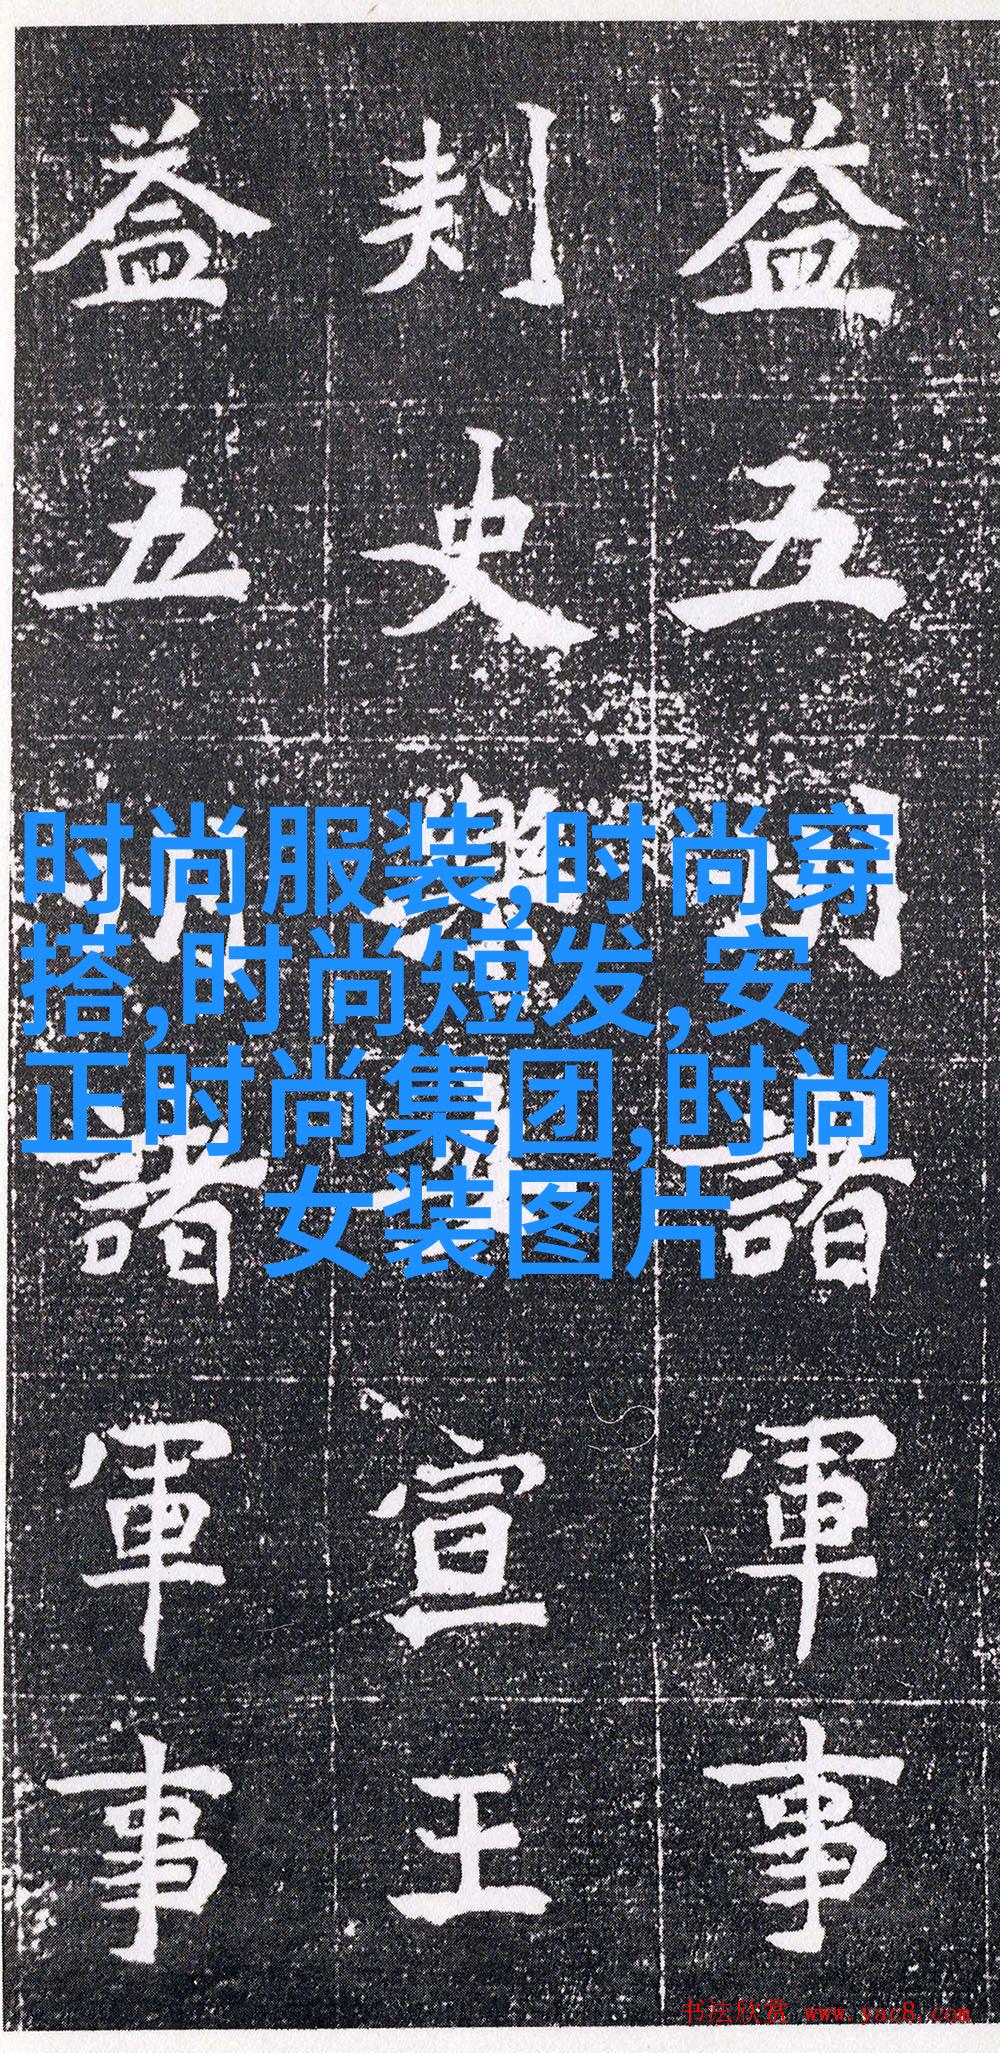 益五諸軍事
刾史宣王
益五諸軍事
时尚服装,时尚穿
搭,时尚短发,安
正时尚集团,时尚
女装图片
书法欣赏 www.yac8.com